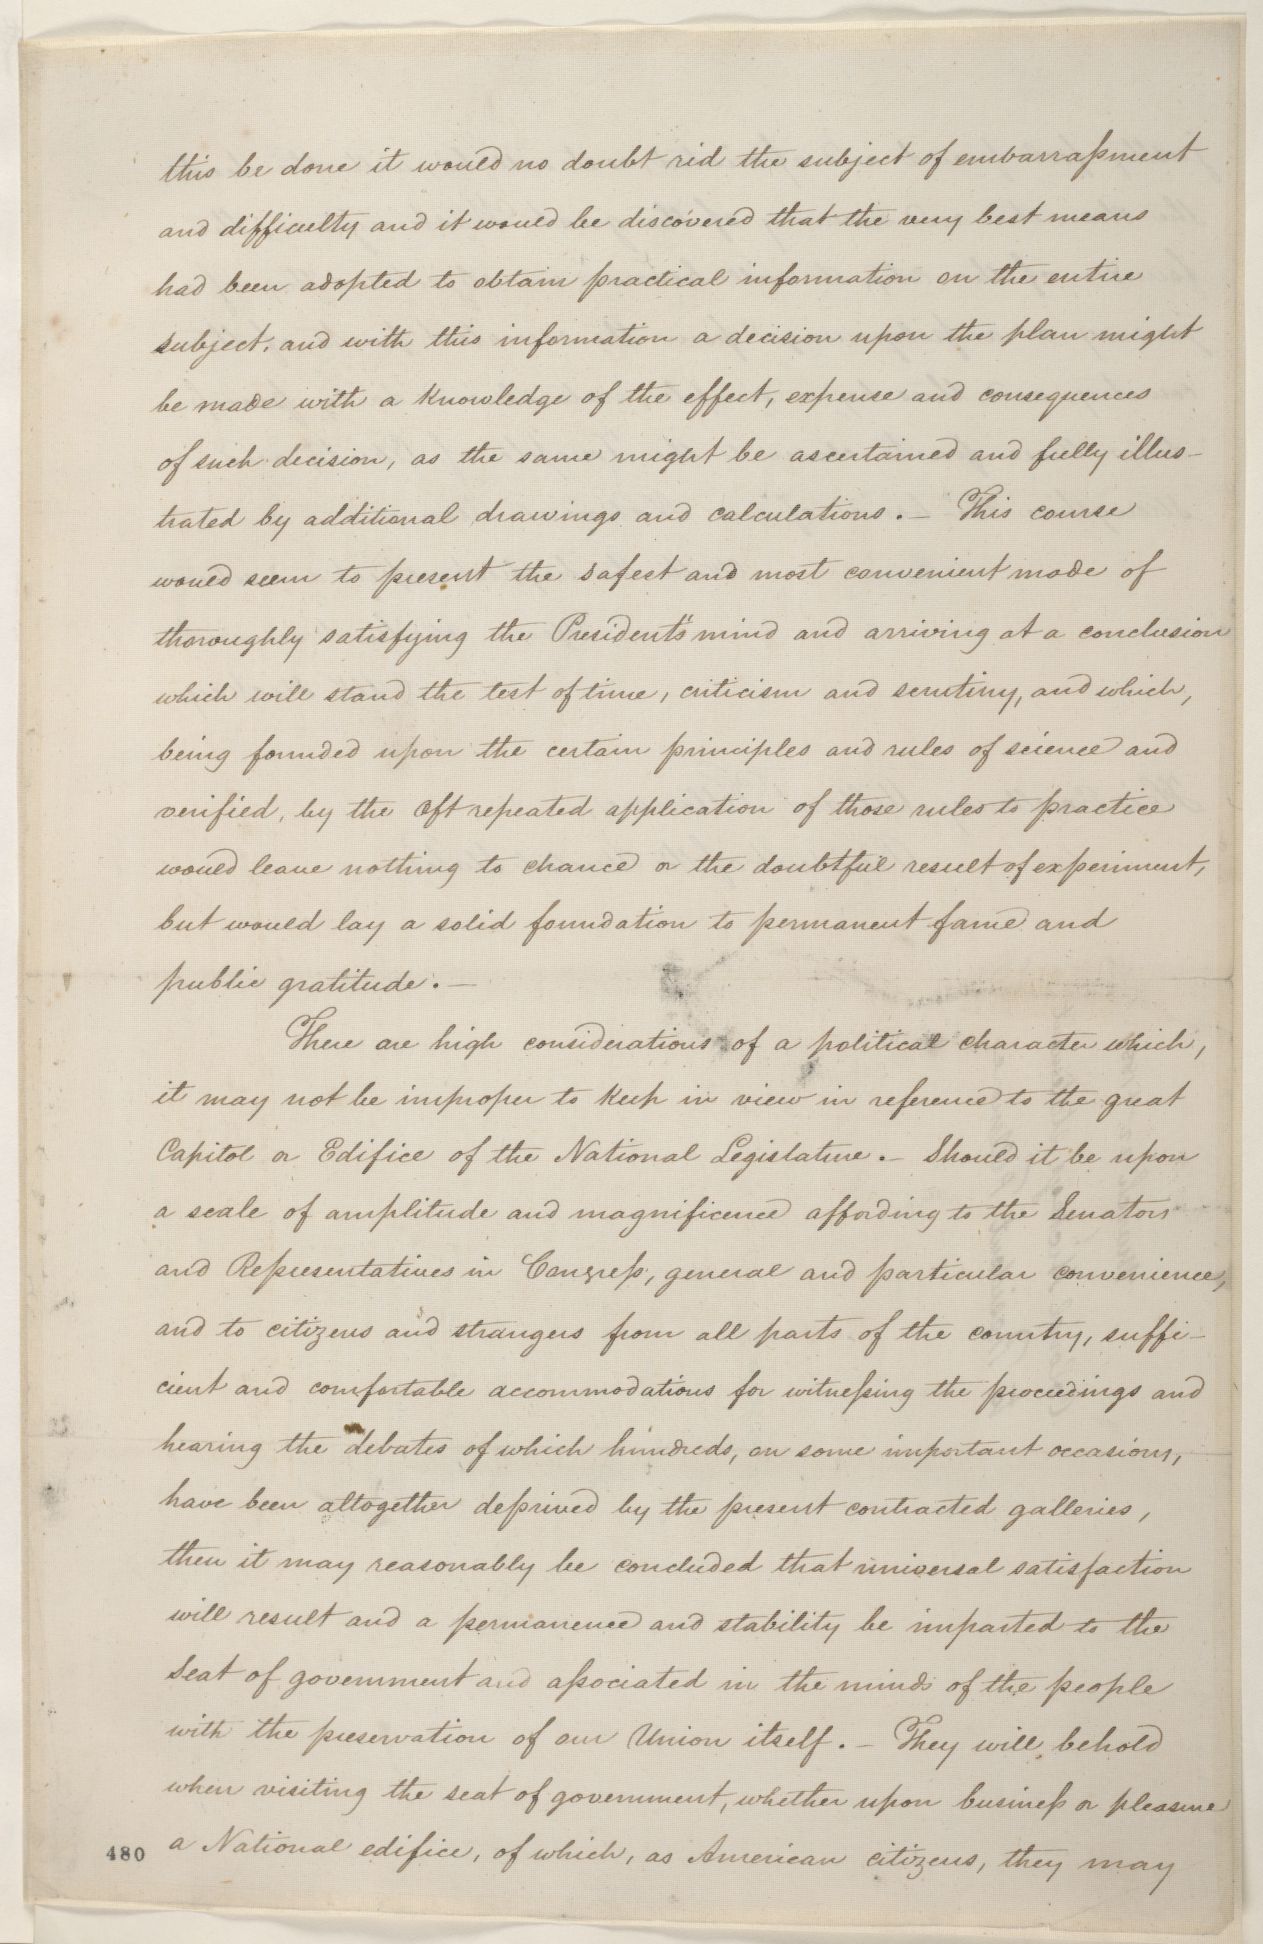 this be done it would no doubt rid the subject of embarrassment
and difficulty and it would be discovered that the very best means
had been adopted to obtain practical information on the entire
subject, and with this information a decision upon the plan might
be made with a knowledge of the effect, expense and consequences
of such decision, as the same might be ascertained and fully illus-
trated by additional drawings and calculations. — This course
would seem to present the safest and most convenient mode of
thoroughly satisfying the President's mind and arriving at a conclusion
which will stand the test of time, criticism and scrutiny, and which,
being founded upon the certain principles and rules of science and
verified, by the oft repeated application of those rules to practice
would leave nothing to chance or the doubtful result of experiment,
but would lay a solid foundation to permanent fame and
public gratitude. —
There are high considerations of a political character which,
it may not be improper to keep in view in reference to the great
Capitol or Edifice of the National Legislature. — Should it be upon
a scale of amplitude and magnificence affording to the Senators
and Representatives in Congress, general and particular convenience,
and to citizens and strangers from all parts of the country, suffi-
cient and comfortable accommodations for witnessing the proceedings and
hearing the debates of which hundreds, on some important occasions,
have been altogether deprived by the present contracted galleries,
then it may reasonably be concluded that universal satisfaction
will result and a permanence and stability be imparted to the
Seat of government and associated in the minds of the people
with the preservation of our Union itself. — They will behold
when visiting the seat of government, whether upon business or pleasure
a National edifice, of which, as American citizens, they may
480